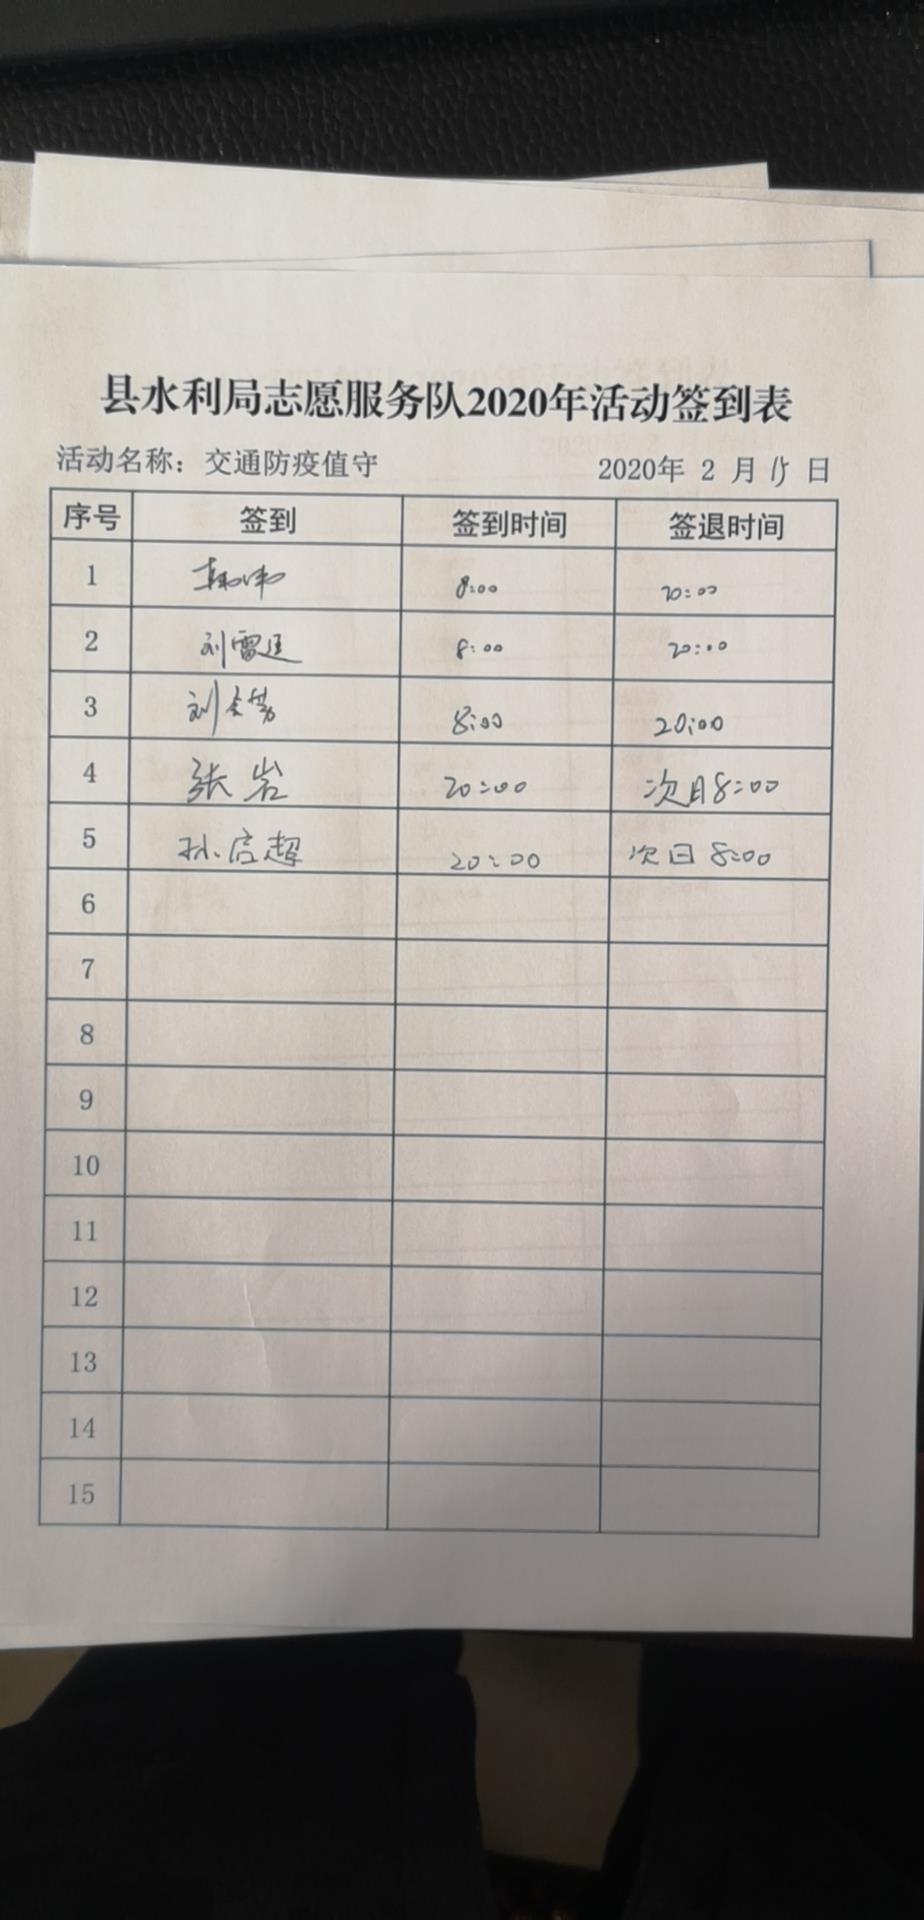 县水利局志愿服务队2020年活动签到表
活动名称：交通防疫值守 2020年 2 月 15 日
序号 签到 签到时间 签退时间
1 韩伟 8:00 20:00
2 刘雷廷 8:00 20:00
3 刘 8:00 20:00
4 张岩 20:00 次日8:00
5 孙启超 20:00 次日8:00
6
7
8
9
10
11
12
13
14
15